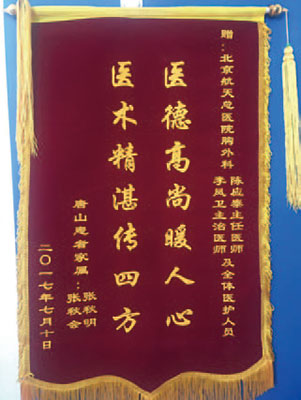 赠：北京航天总医院胸外科
陈应泰主任医师
李凤卫主治医师
及全体医护人员
医德高尚暖人心
医术精湛传四方
唐山患者家属：
张秋明
张秋会
二〇一七年七月十日